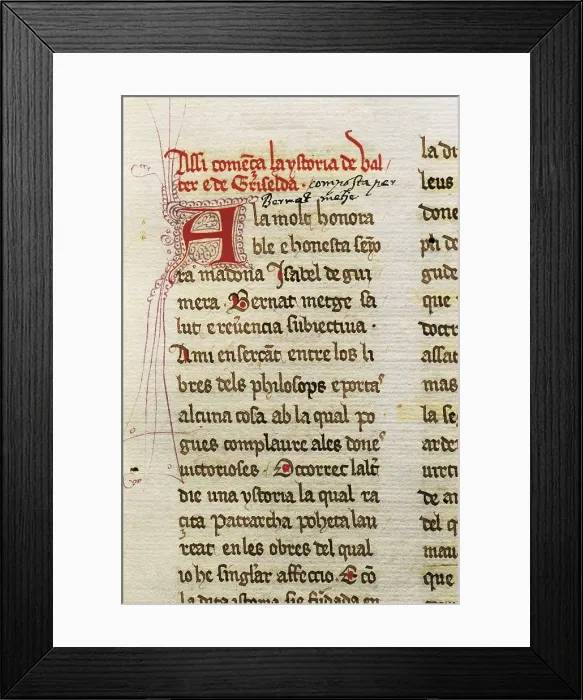 Assi comēça la ystoria de Val
ter e de Griselda · composta per
Bernat metje
A la molt honora
ble e honesta seyo
ra madona Isabel de gui
mera · Bernat metge sa
lut e reuerencia subiectiua ·
Ami en sercāt entre los li
bres dels philosops e poeta
alcuna cosa ab la qual po
gues complaure a les done
uirtuosoes · Occorrec laltr
die una ystoria la qual ra
çita Patrarcha poheta lau
reat en les obres del qual
io he singular affeccio · E cō
la dita istoria sie fūdada en
la di
leus
done
ph de
gude
que
doctr
assat
mas
la se
arde
uirti
de an
del q
mau
que